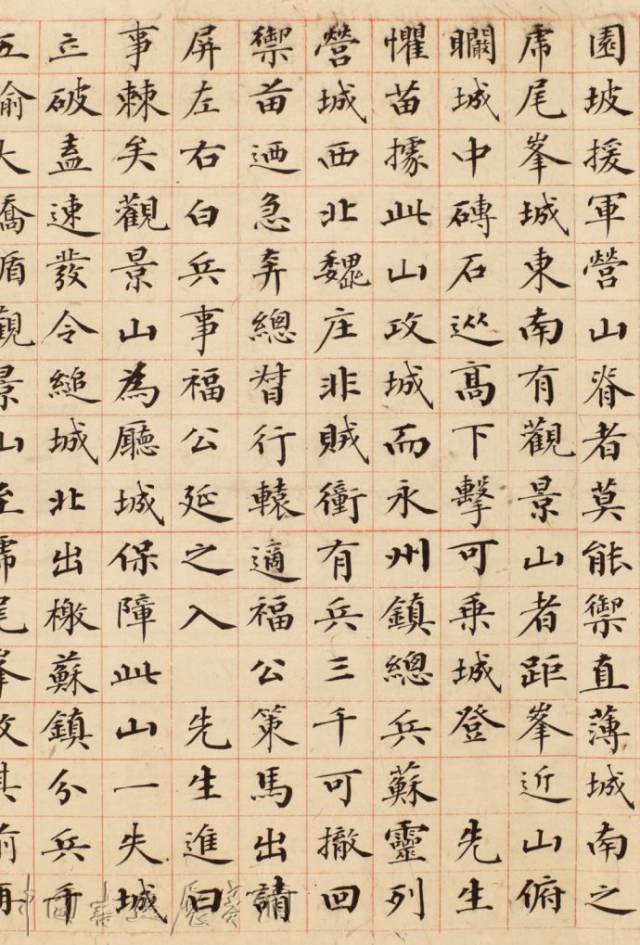 園坡援軍營山脊者莫能禦直薄城南之
虎尾峯城東南有觀景山者距峯近山俯
矙城中磚石從高下擊可乘城登 先生
懼苗據此山攻城而永州鎮總兵蘇靈列
營城西北魏庄非賊衝有兵三千可撤回
禦苗迺急奔總督行轅適福公策馬出請
屏左右白兵事福公延之入 先生進曰
事棘矣觀景山為廳城保障此山一失城
立破盍速發令縋城北出檄蘇鎮分兵千
五觀景山至虎尾峯攻其前再